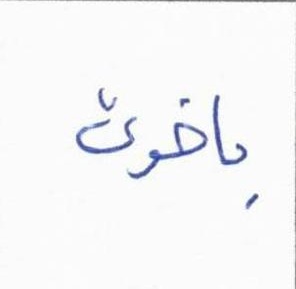 باخوت